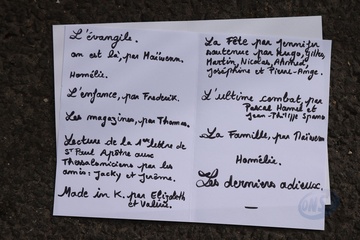 L'évangile.
on est là, par Maïwenn.
Homélie.
L'enfance, par Frederik.
Les magazines, par Thomas.
Lecture de la 1ère lettre de
St Paul Apôtre aux
Thessaloniciens par les
amis: Jacky et Jérôme.
Made in K. par Elizabeth
et Valéie.
La Fête par Jennifer
soutenue par Hugo, Gilles,
Martin, Nicolas, Ahmed,
Joséphine et Pierre-Ange.
L'ultime combat, par
Pascal Hamel et
Jean-Philippe Spano
La Famille, par Maïwenn
Homélie.
Les derniers adieux.